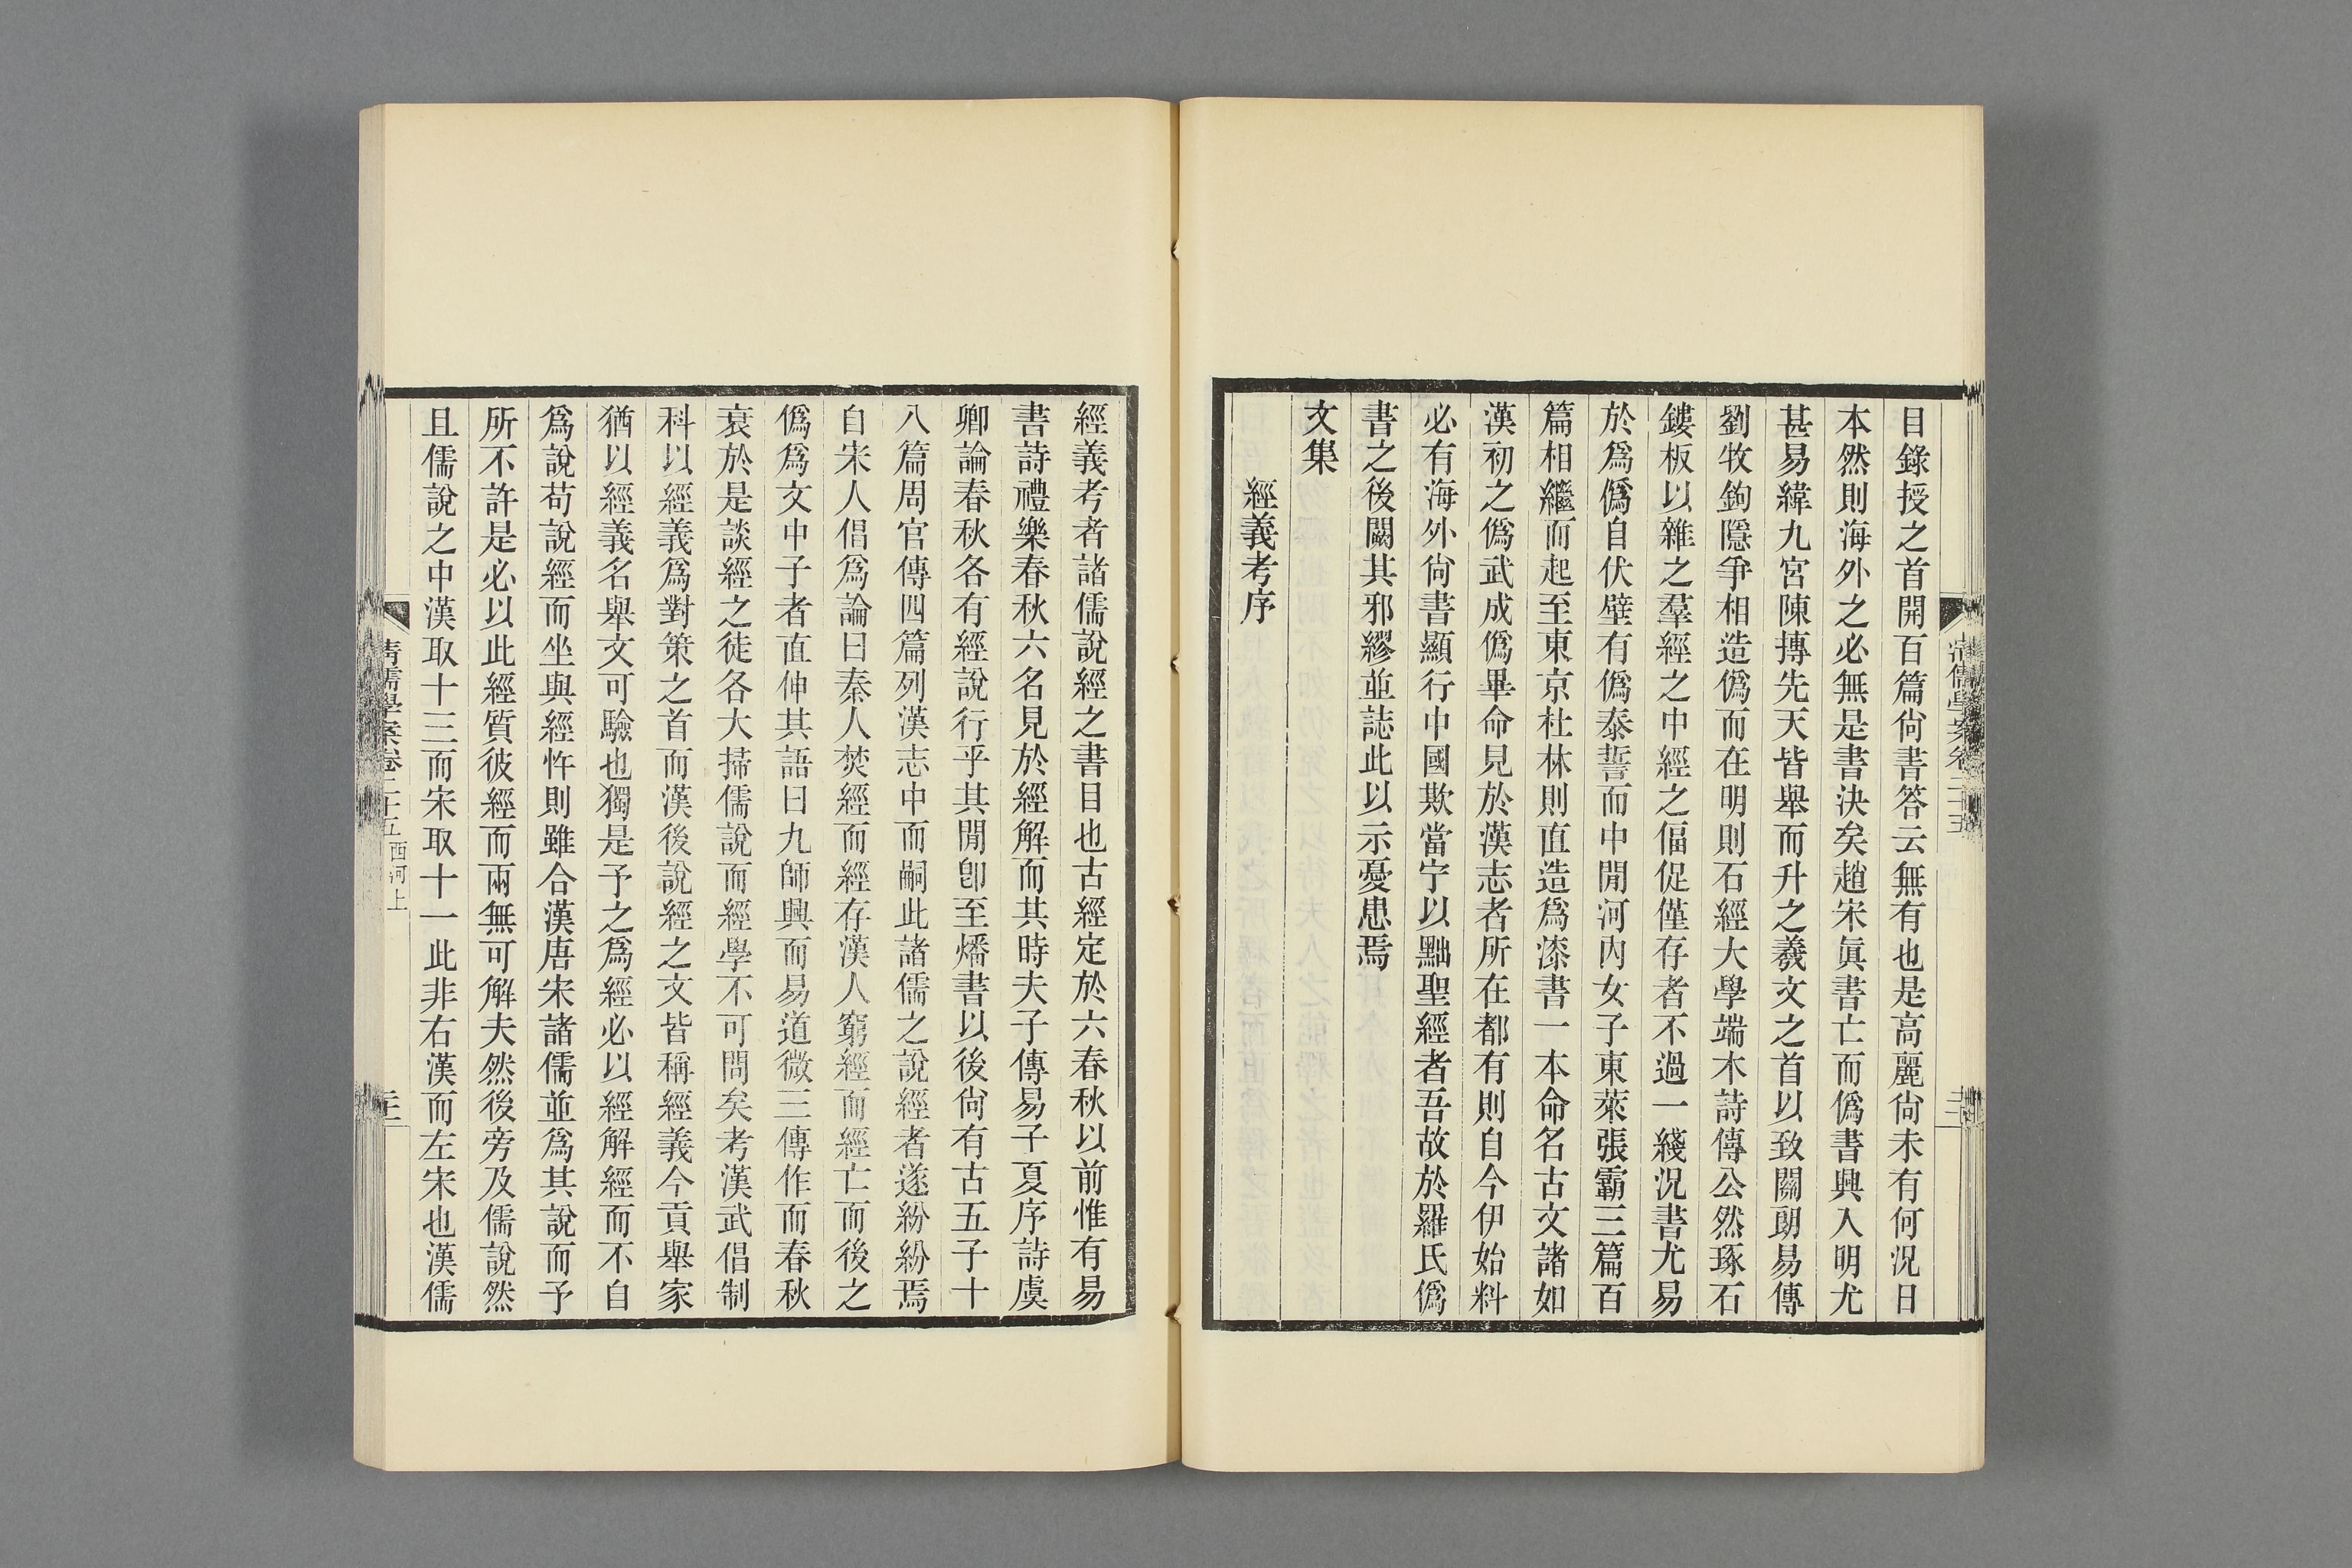 目錄授之首開百篇尙書答云無有也是高麗尙未有何況日
本然則海外之必無是書決矣趙宋眞書亡而僞書興入明尤
甚易緯九宮陳摶先天皆舉而升之羲文之首以致關朗易傳
劉牧鉤隱爭相造僞而在明則石經大學端木詩傳公然琢石
鏤板以雜之羣經之中經之偪促僅存者不過一綫況書尤易
於爲僞自伏壁有僞泰誓而中閒河內女子東萊張霸三篇百
篇相繼而起至東京杜林則直造爲漆書一本命名古文諸如
漢初之僞武成僞畢命見於漢志者所在都有則自今伊始料
必有海外尙書顯行中國欺當宁以黜聖經者吾故於羅氏僞
書之後闢其邪繆並誌此以示憂患焉
文集
經義考序
經義考者諸儒說經之書目也古經定於六春秋以前惟有易
書詩禮樂春秋六名見於經解而其時夫子傳易子夏序詩虞
卿論春秋各有經說行乎其閒卽至燔書以後尙有古五子十
八篇周官傳四篇列漢志中而嗣此諸儒之說經者遂紛紛焉
自宋人倡爲論曰秦人焚經而經存漢人窮經而經亡而後之
僞爲文中子者直伸其語曰九師興而易道微三傳作而春秋
衰於是談經之徒各大掃儒說而經學不可問矣考漢武倡制
科以經義爲對策之首而漢後說經之文皆稱經義今貢舉家
猶以經義名舉文可驗也獨是予之爲經必以經解經而不自
爲說苟說經而坐與經忤則雖合漢唐宋諸儒並爲其說而予
所不許是必以此經質彼經而兩無可解夫然後旁及儒說然
且儒說之中漢取十三而宋取十一此非右漢而左宋也漢儒
清儒學案卷二十五 西河上